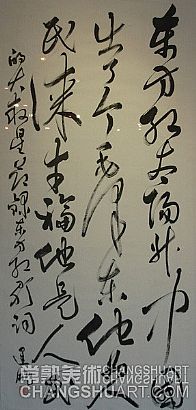 东方红太阳升中國
出了个毛泽东他为人
民谋幸福他是人民
的大救星 录东方红歌词
常熟美術
CHANGSHUART.COM